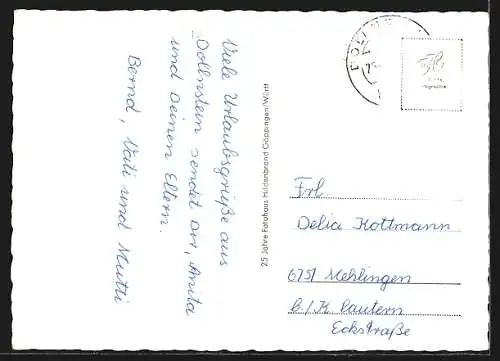 Viele Urlaubsgrüße aus
Dollnstein sendet dir, Anita
und Deinen Eltern.
Bernd, Vati und Mutti
25 Jahre Fotohaus Hildenbrand Göppingen/Württ
Frl.
Delia Kottmann
6751 Mehlingen
b./K. lautern
Eckstraße